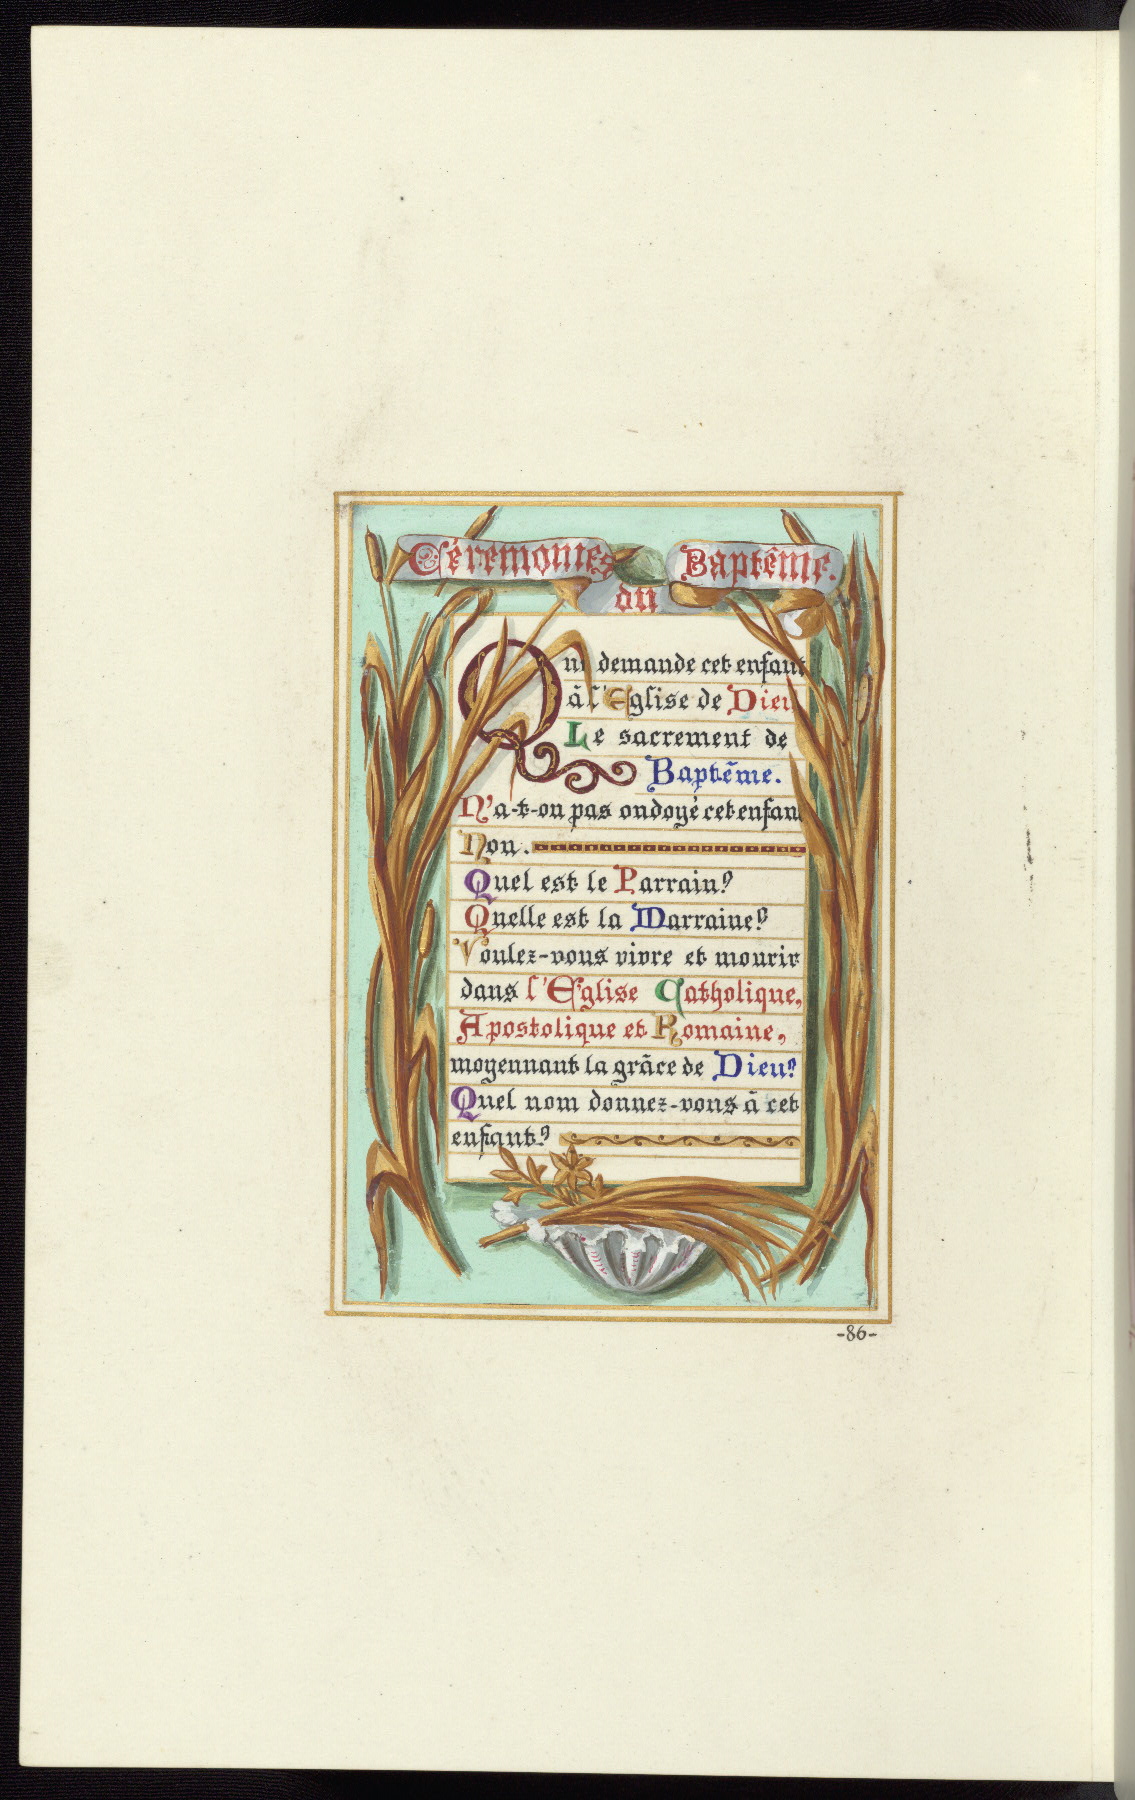 Cérémonies
du
Baptême.
Que demande cet enfant
à l'Eglise de Dieu
Le sacrement de
Baptême.
N'a-t-on pas ondoyé cet enfant
Non.
Quel est le Parrain?
Quelle est la Marraine?
Voulez-vous vivre et mourir
dans l'Eglise Catholique,
Apostolique et Romaine,
moyennant la grâce de Dieu?
Quel nom donnez-vous à cet
enfant?
-86-